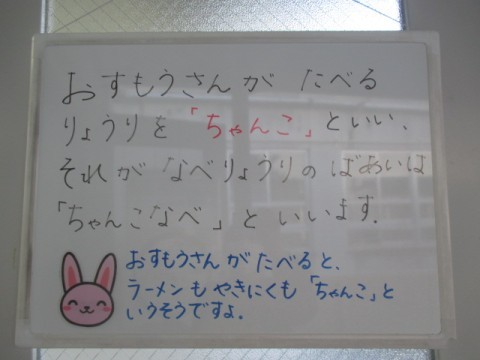 おすもうさんが たべる
りょうりを「ちゃんこ」といい、
それが なべりょうりの ばあいは
「ちゃんこなべ」と いいます.
おすもうさんが たべると、
ラーメンも やきにくも 「ちゃんこ」と
いうそうですよ.